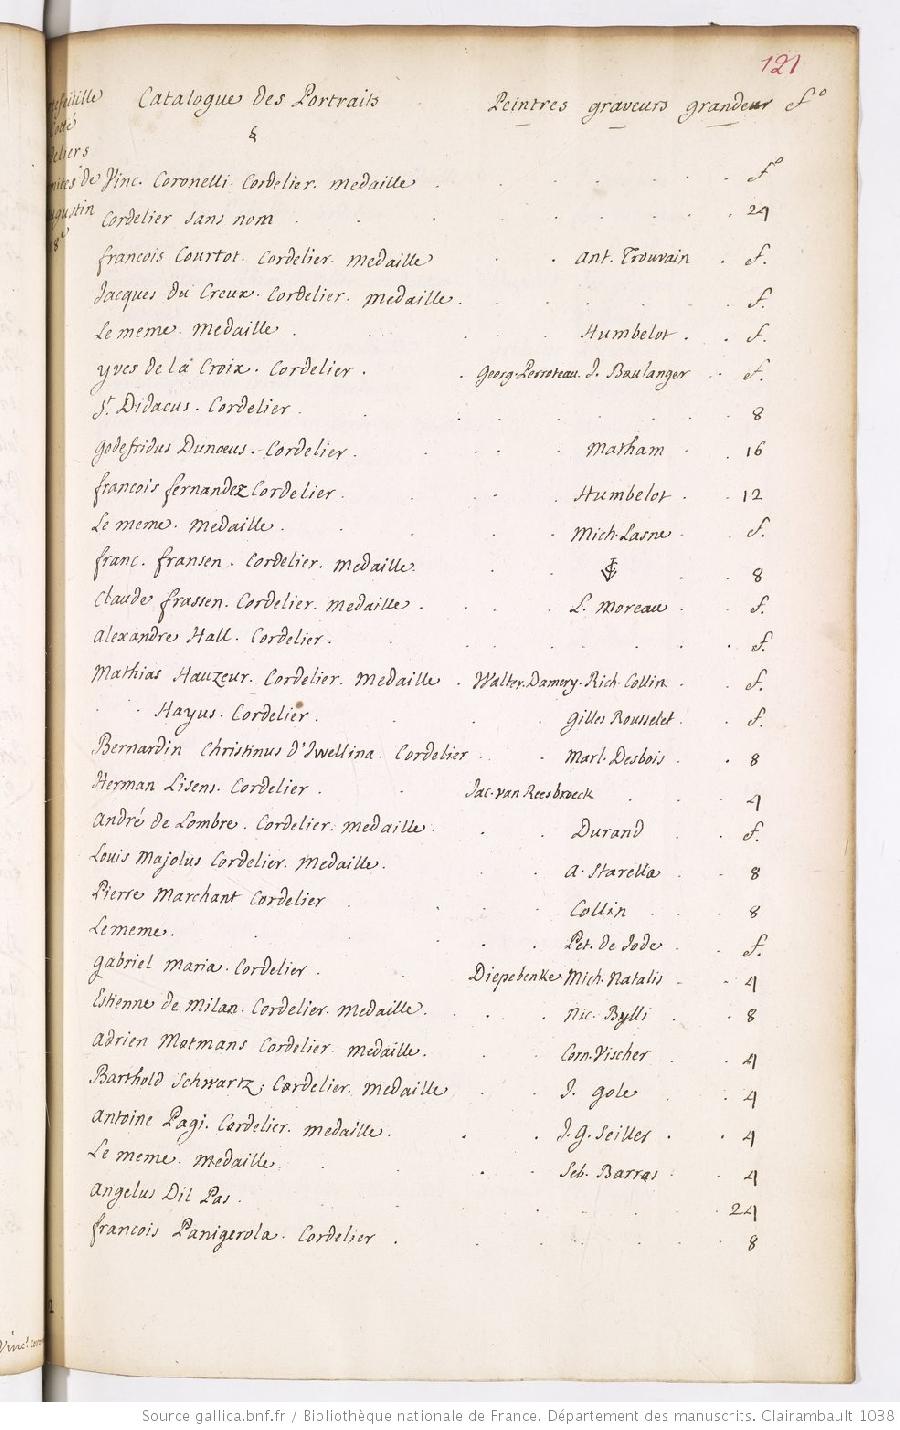 121
Catalogue des Portraits Peintres graveurs grandeur fo
§
Vinc. Coronelli Cordelier. medaille . . . . . fo
Cordelier sans nom . . . . . 24
françois Courtot. Cordelier. medaille . . Ant. Trouvain . f.
Jacques du Creux. Cordelier. medaille. . . . . f.
Le meme. medaille . . . Humbelot . . f.
yves de la Croix. Cordelier . . Georg. Perroteau. J. Boulanger . . f.
St. Didacus. Cordelier. . . . . . 8
godefridus Dunœus. Cordelier. . . . Matham . . 16
françois fernandez Cordelier. . . . Humbelot . . 12
Le meme. medaille . . . . Mich. Lasne . . f.
franc. fransen. Cordelier. medaille. . . . . 8
Claude frassen. Cordelier. medaille . . . . L. Moreau . . f.
alexandre Hall. Cordelier. . . . . . f.
Mathias Hauzeur. Cordelier. medaille . Walter. Damery. Rich. Collin . . f.
. . Hayus. Cordelier. . . . gilles Rousselet . . f.
Bernardin Christinus D'Jwellina Cordelier . . Marl. Desbois . . 8
Herman Lisens. Cordelier . . Jac. van Reesbroeck . . . 4
André de Lombre. Cordelier. medaille . . . Durand . . f.
Louis Majolus Cordelier. medaille. . . A. Starella . . 8
Pierre Marchant Cordelier . . . Collin . . 8
Le meme. . . . . Pet. de Jode . . f.
gabriel Maria. Cordelier . . Diepebenke Mich. Natalis . . 4
Estienne de Milan. Cordelier. medaille. . . . Nic. Bylli . . 8
adrien Motmans Cordelier. medaille. . . Corn. Vischer . . 4
Barthold Schwartz; Cordelier. medaille . . J. gole . . 4
antoine Pagi. Cordelier. medaille . . . J. G. Seiller . . 4
Le meme. medaille . . . Seb. Barras . . 4
angelus Dil Pas. . . . . . 24
françois Panigerola. Cordelier . . . . . 8
Source gallica.bnf.fr / Bibliothèque nationale de France. Département des manuscrits. Clairambault 1038